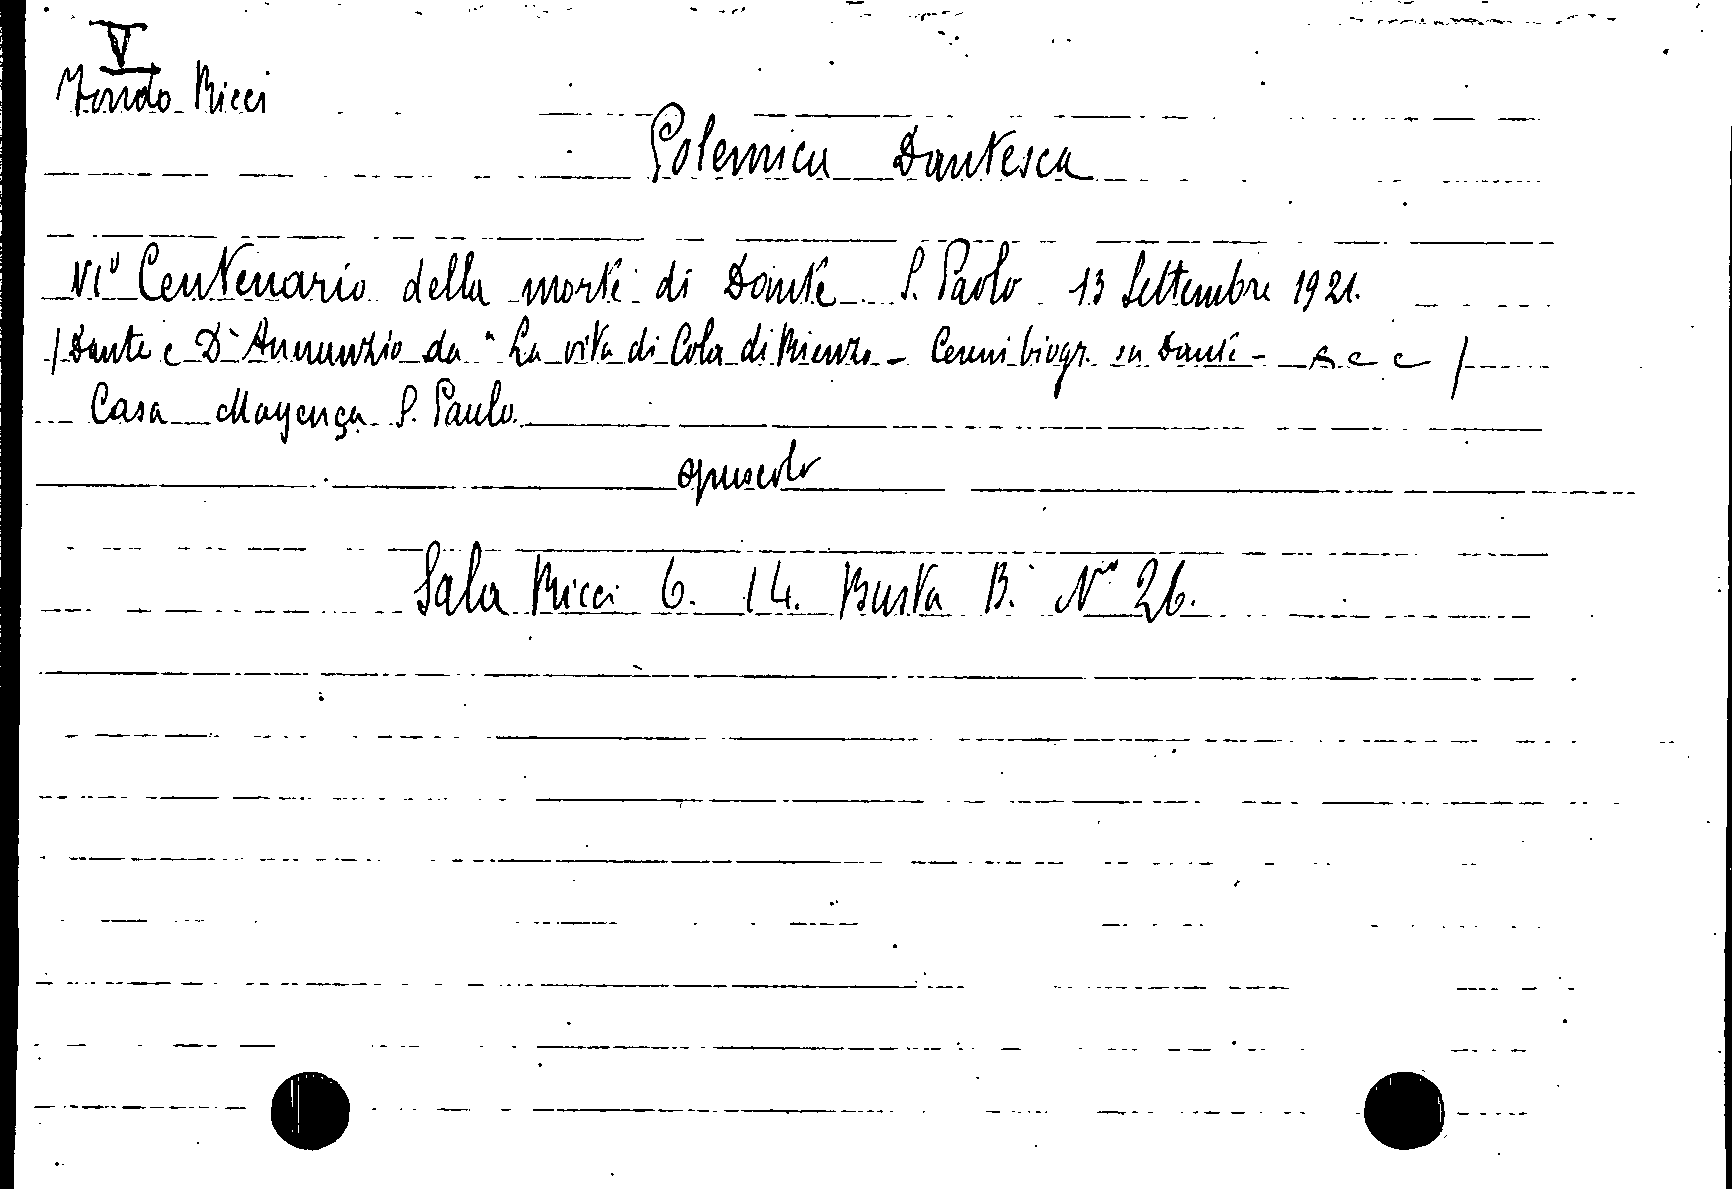 V
Fondo Ricci
Polemica Dantesca
VIº Centenario della morte di Dante S. Paolo 13 Settembre 1921.
/ Dante e D'Annunzio da "La vita di Cola di Rienzo - Cenni biogr. su Dante - e c c /
Casa Mayença S. Paulo.
opuscolo
Sala Ricci 6. 14. Busta B. Nº 26.